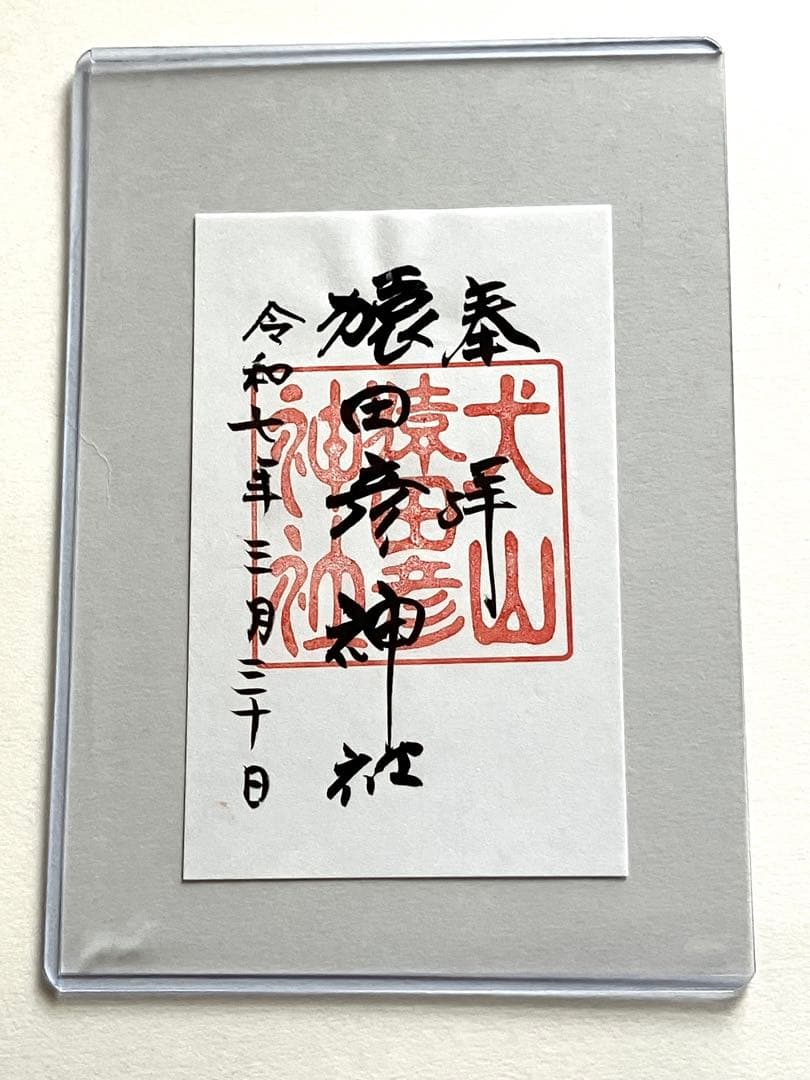 奉拝
猿田彦神社
令和七年三月三十日
犬山
猿田彦
神社